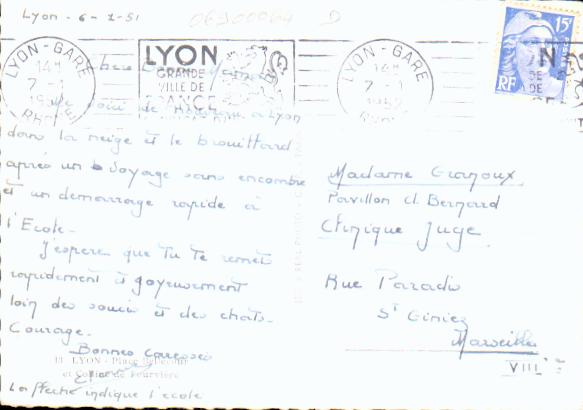 Lyon - 6 - 1 - 51
06900064 D
LYON-GARE
14H
7 - 1
RHONE
LYON
GRANDE
VILLE DE
FRANCE
LYON-GARE
14H
7 - 1
1952
15F
RF
N
Me voici de à Lyon
dans la neige et le brouillard
après un voyage sans encombre
et un démarrage rapide à
l'Ecole.
J'espère que tu te remet
rapidement et goyeusement
loin des soucis et des chats.
Courage.
Bonnes caresses
La flèche indique l'école
LYON - Place Bellecour
et Colline de Fourvière
Madame Granoux
Pavillon Cl. Bernard
Clinique Juge
Rue Paradis
St Giniez
Marseille
VIIIe